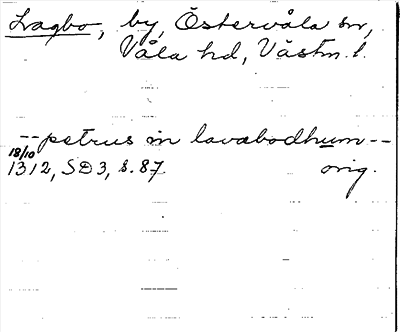 Lagbo, by, Östervåla sn,
Våla hd, Västm. l.
-- petrus in lavabodhum --
18/10
1312, SD3, s. 87. orig.